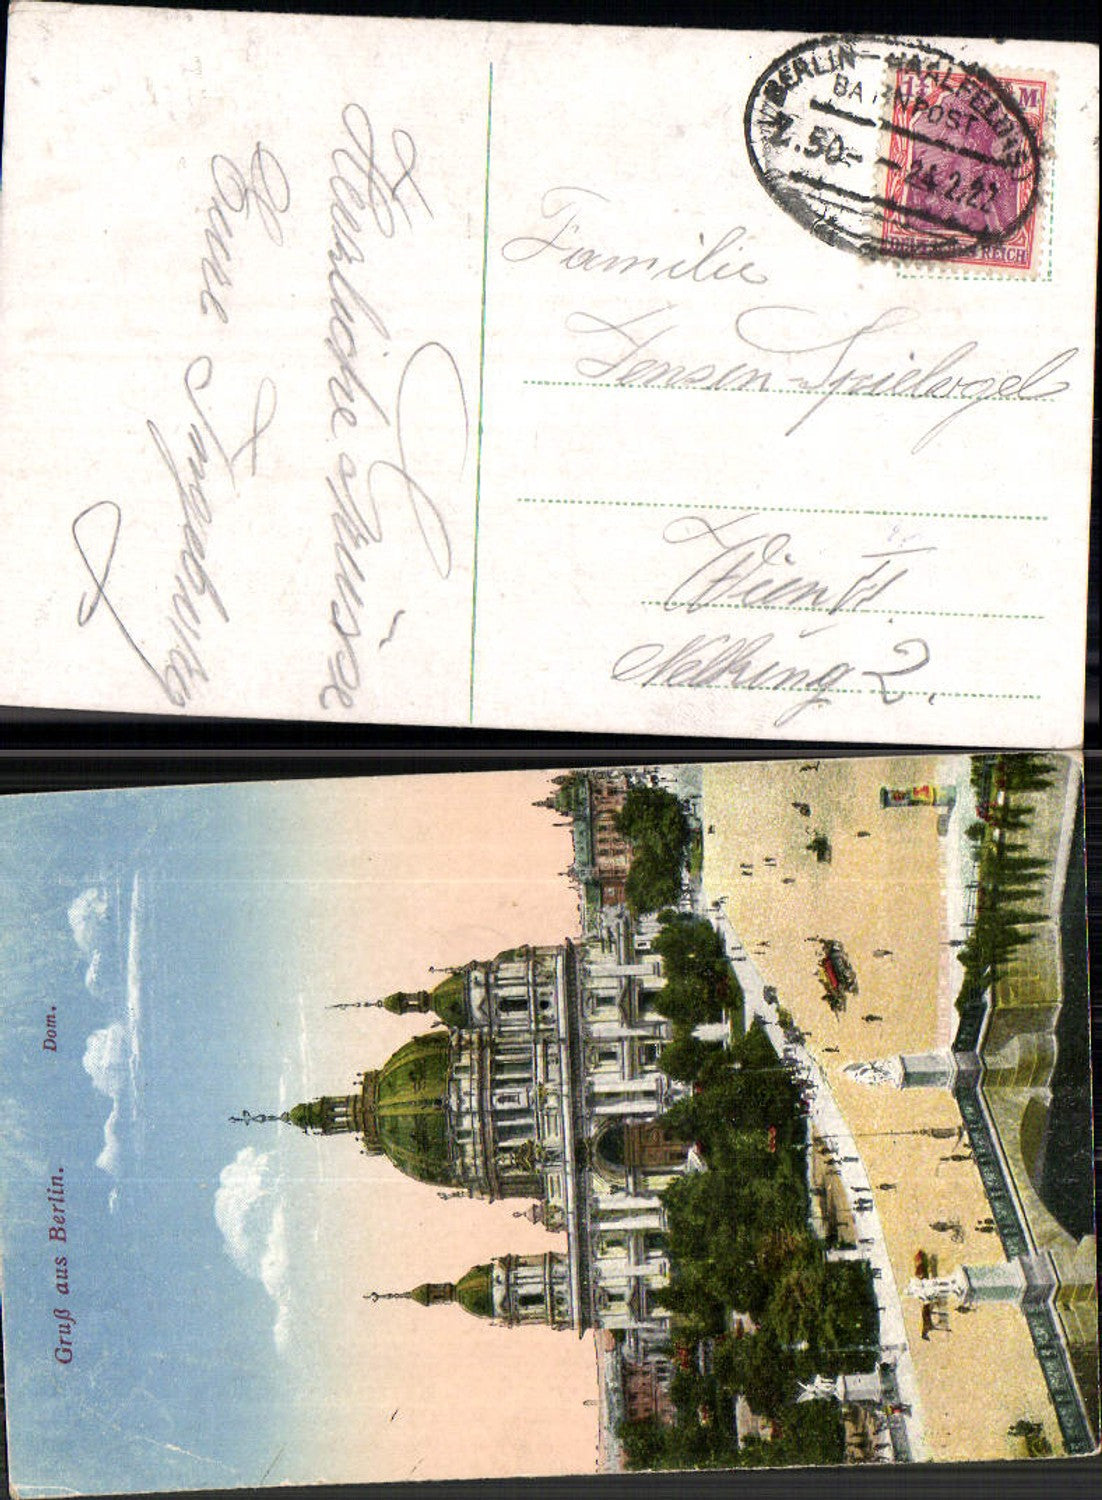 BERLIN - SAALFELD (S)
BAHNPOST
Z.50 - - 24.2.22
1¼ M
DEUTSCHES REICH
Familie
Jensen-Spielvogel
Wien
2.
Herzliche Grüsse
Eure Ingeborg
Gruß aus Berlin. Dom.